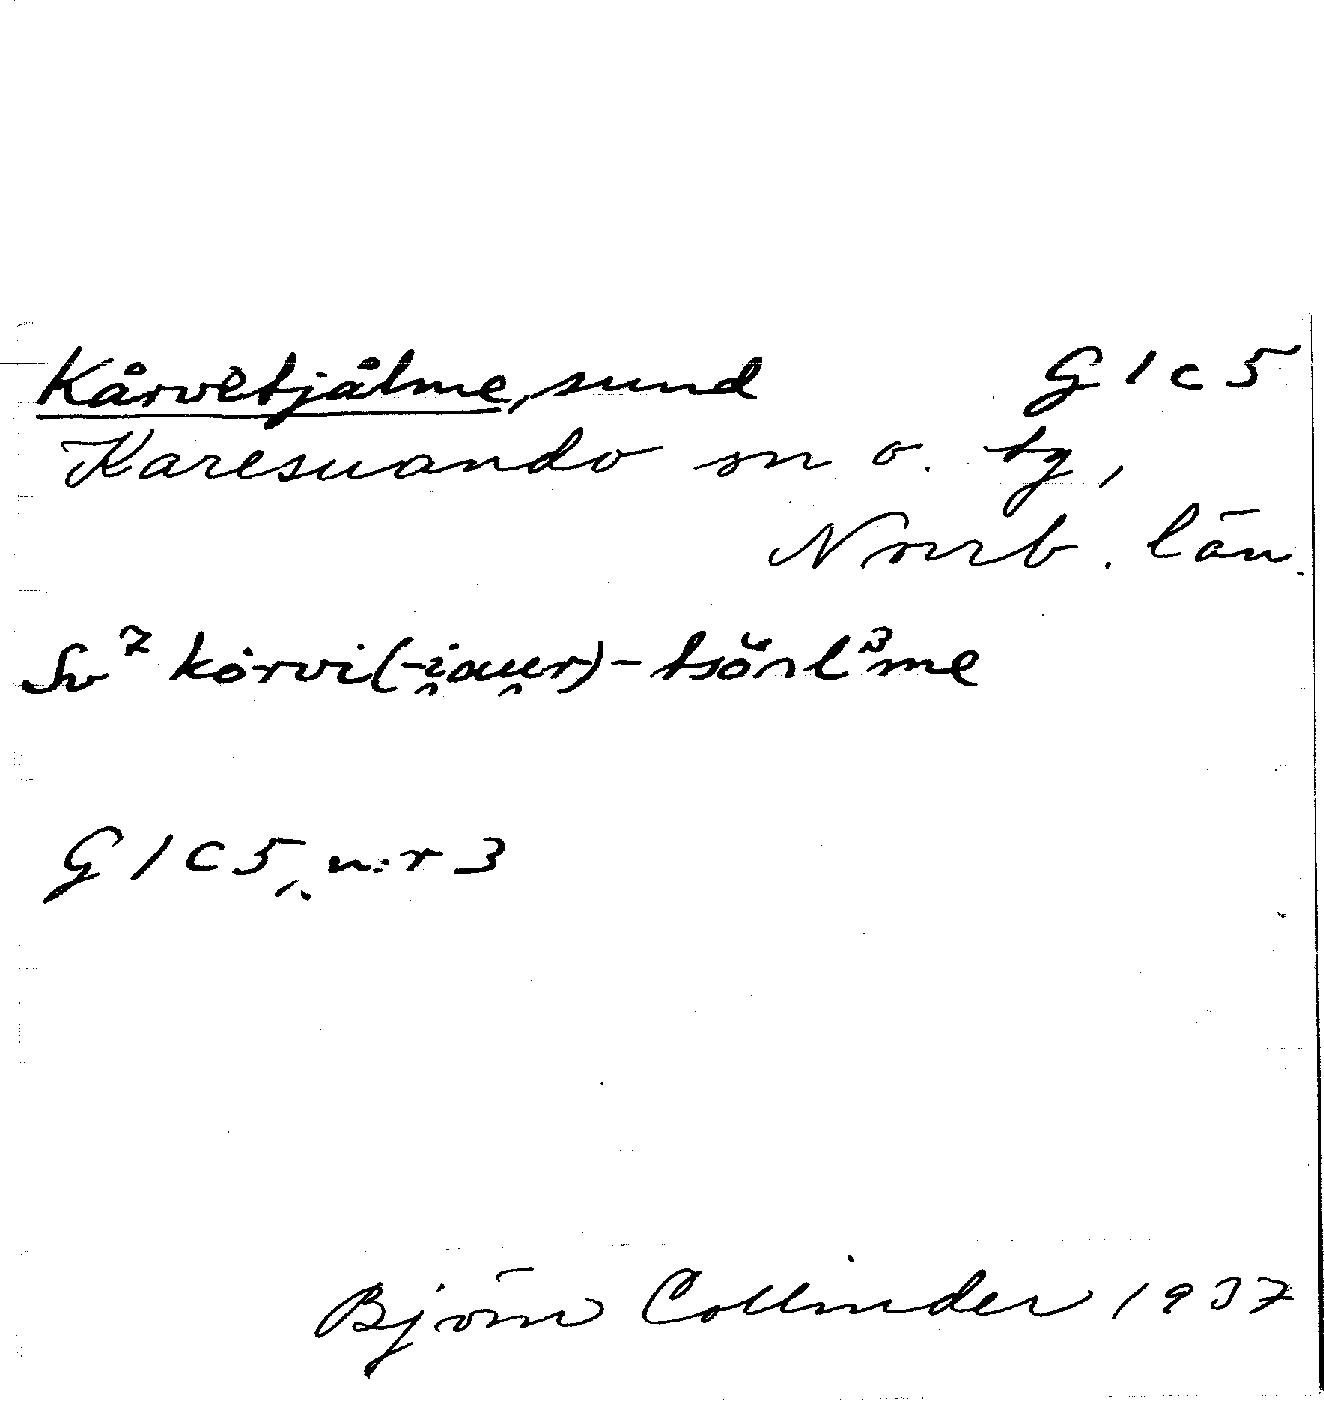 Kårvetjålme, sund G 1 c 5
Karesuando sn o. tg,
Norrb. län.
Sv⁷ kȯrvi(-i̯au̯r)-
G 1 C 5, n:r 3
Björn Collinder 1937